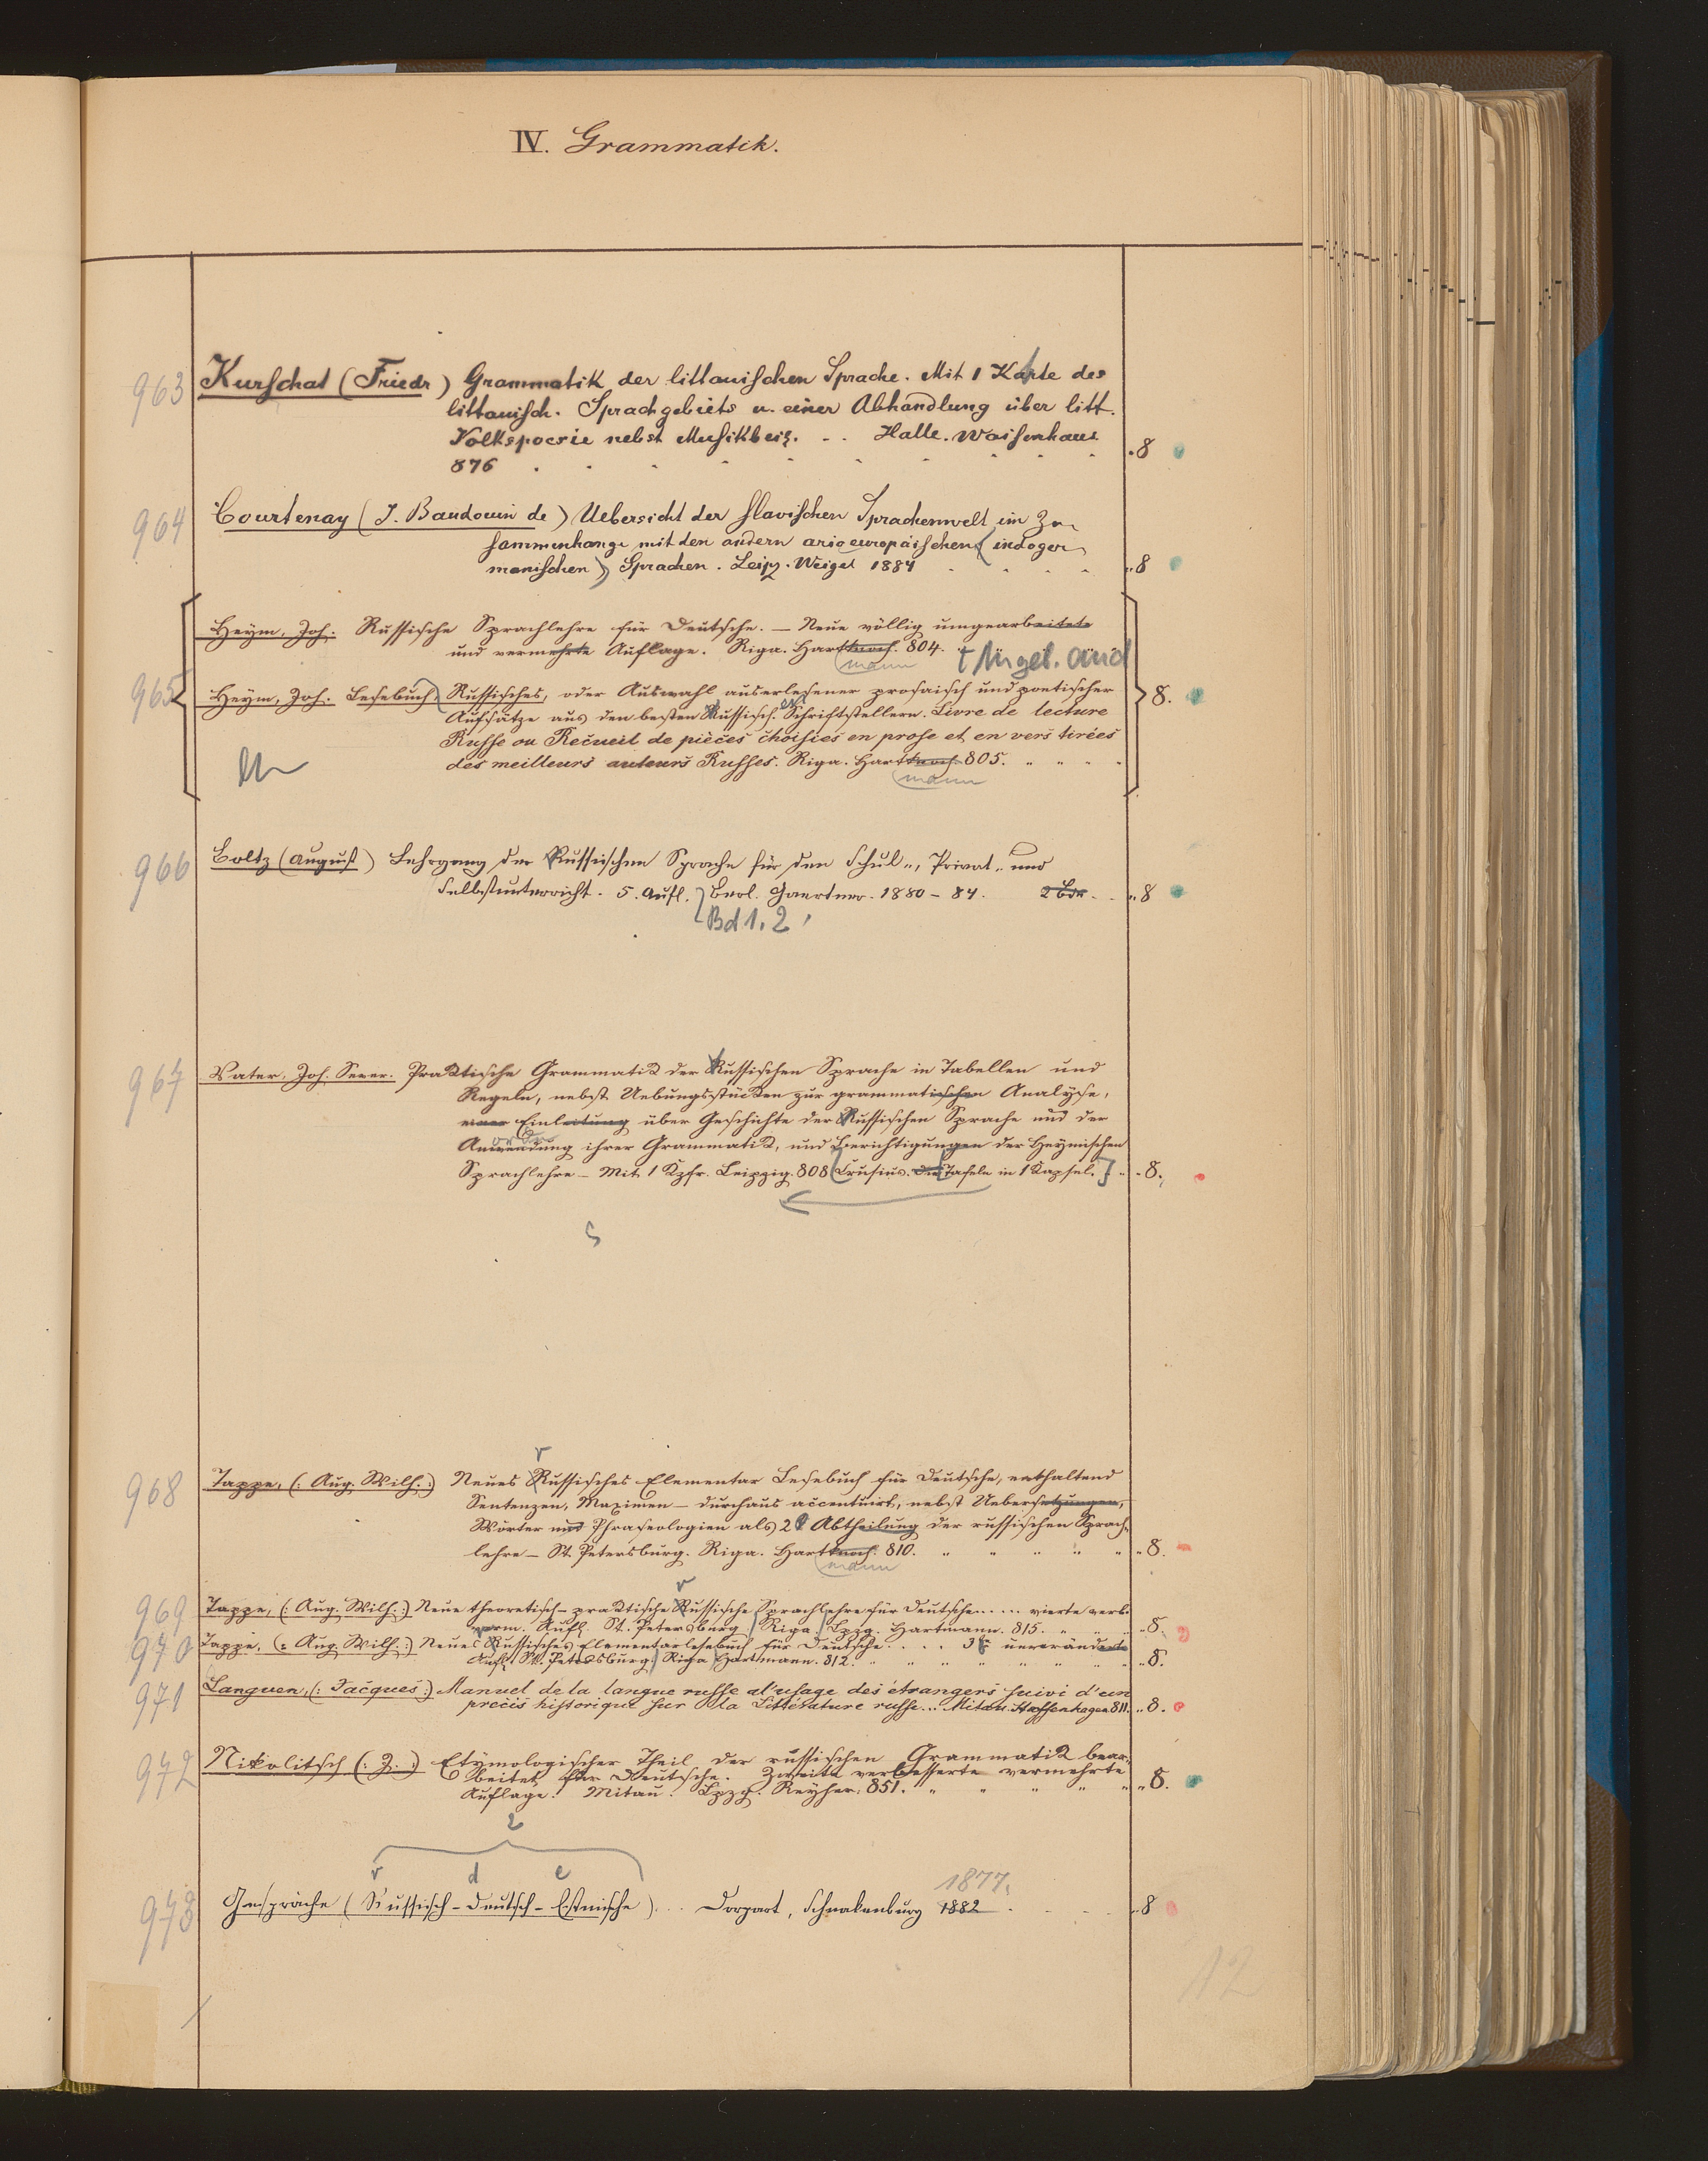 IV. Grammatik.
963 Kurschat (Friedr) Grammatik der littauischen Sprache. Mit 1 Karte des
littauisch. Sprachgebiets u. einer Abhandlung über litt.
Volkspoesie nebst Musikbeig. - . Halle. Waisenhaus
876 . 8
964 Courtenay (J. Baudouin de) Uebersicht der slavischen Sprachenwelt im Zu-
sammenhange mit den andern arioeuropäischen (indoger
manischen) Sprachen. Leipz. Weigel 1884 8
Heym, Joh. Russische Sprachlehre für Deutsche. — Neue völlig umgearbeitete
und vermehrte Auflage. Riga. Hartknoch. 804.
mann
965 Heym, Joh. Lesebuch, Russisches, oder Auswahl auserlesener prosaisch und poetischer 8.
Aufsätze aus den besten Russisch. en Schriftstellern. Livre de lecture
Russe ou Recueil de pièces choisies en prose et en vers tirées
des meilleurs auteurs Russes. Riga. Hartknoch 805.
mann
966 Boltz (August) Lehrgang der Russischen Sprache für den Schul-, Privat- und
Selbstunterricht. 5. Aufl. Berl. Gaertner. 1880 - 84. 2 Bde. 8
Bd 1. 2
967 Vater, Joh. Sever. Praktische Grammatik der Russischen Sprache in Tabellen und
Regeln, nebst Uebungsstücken zur grammatischen Analyse,
einer Einleitung über Geschichte der Russischen Sprache und der
Anwendung ihrer Grammatik, und Berichtigungen der Heymischen
Sprachlehre — Mit 1 Kpfr. Leipzig. 808 Crusius. Die Tafeln in 1 Kapsel.] 8.
968 Tappe, (: Aug. Wilh. :) Neues Russisches Elementar Lesebuch für Deutsche, enthaltend
Sentenzen, Maximen — durchaus accentuirt, nebst Uebersetzungen,
Wörter und Phraseologien als 2 Abtheilung der russischen Sprach-
lehre — St. Petersburg. Riga. Hartknoch. 810. 8.
mann
969 Tappe, (: Aug. Wilh. :) Neue theoretisch-praktische Russische Sprachlehre für Deutsche...... vierte verb.
verm. Aufl. St. Petersburg Riga. Lpzg. Hartmann. 815. 8.
970 Tappe, (: Aug. Wilh. :) Neues Russisches Elementarlesebuch für Deutsche . . . 3 unveränderte
Aufl. St. Petersburg. Riga Hartmann. 812. 8.
971 Languen, (: Jacques :) Manuel de la langue russe al'usage des étrangers suivi d'un
précis historique sur la Littérature russe... Mitau. Steffenhagen 811. 8.
972 Nikolitsch (: Z. :) Etymologischer Theil der russischen Grammatik bear-
beitet für Deutsche. Zweite verbesserte vermehrte
Auflage. Mitau. Lpzg. Reyher. 851. 8.
r d e
1877.
973 Gespräche (Russisch-Deutsch-Estnische) . . . Dorpart, Schnakenburg 1882 8
12